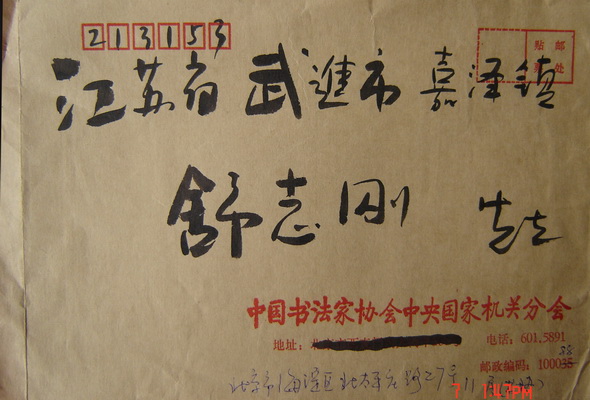 213153
贴 邮
处
江苏省 武進市 嘉泽镇
舒志刚
中国书法家协会中央国家机关分会
地址: 电话: 601.5891
邮政编码: 100035 38
北京市海淀区北太平庄路27号
7:47PM